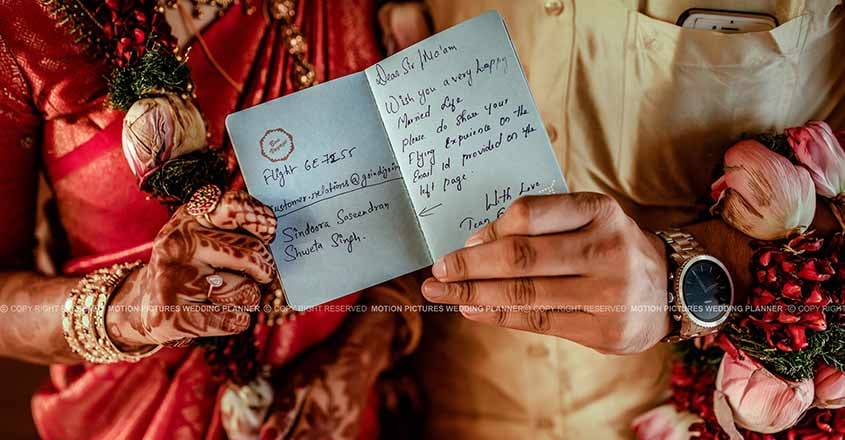 Bon Voyage
Flight 6E 7255
customer.relations@goindigo.in
Sindoora Saseendran
Shweta Singh.
Dear Sir / Ma'am
Wish you a very happy
Married Life
Please do share your
Flying Experience on the
Email Id provided on the
left page.
With Love
Team
© COPY RIGHT RESERVED MOTION PICTURES WEDDING PLANNER © COPY RIGHT RESERVED MOTION PICTURES WEDDING PLANNER © COPY RIGHT RESERVED MOTION PICTURES WEDDING PLANNER ©